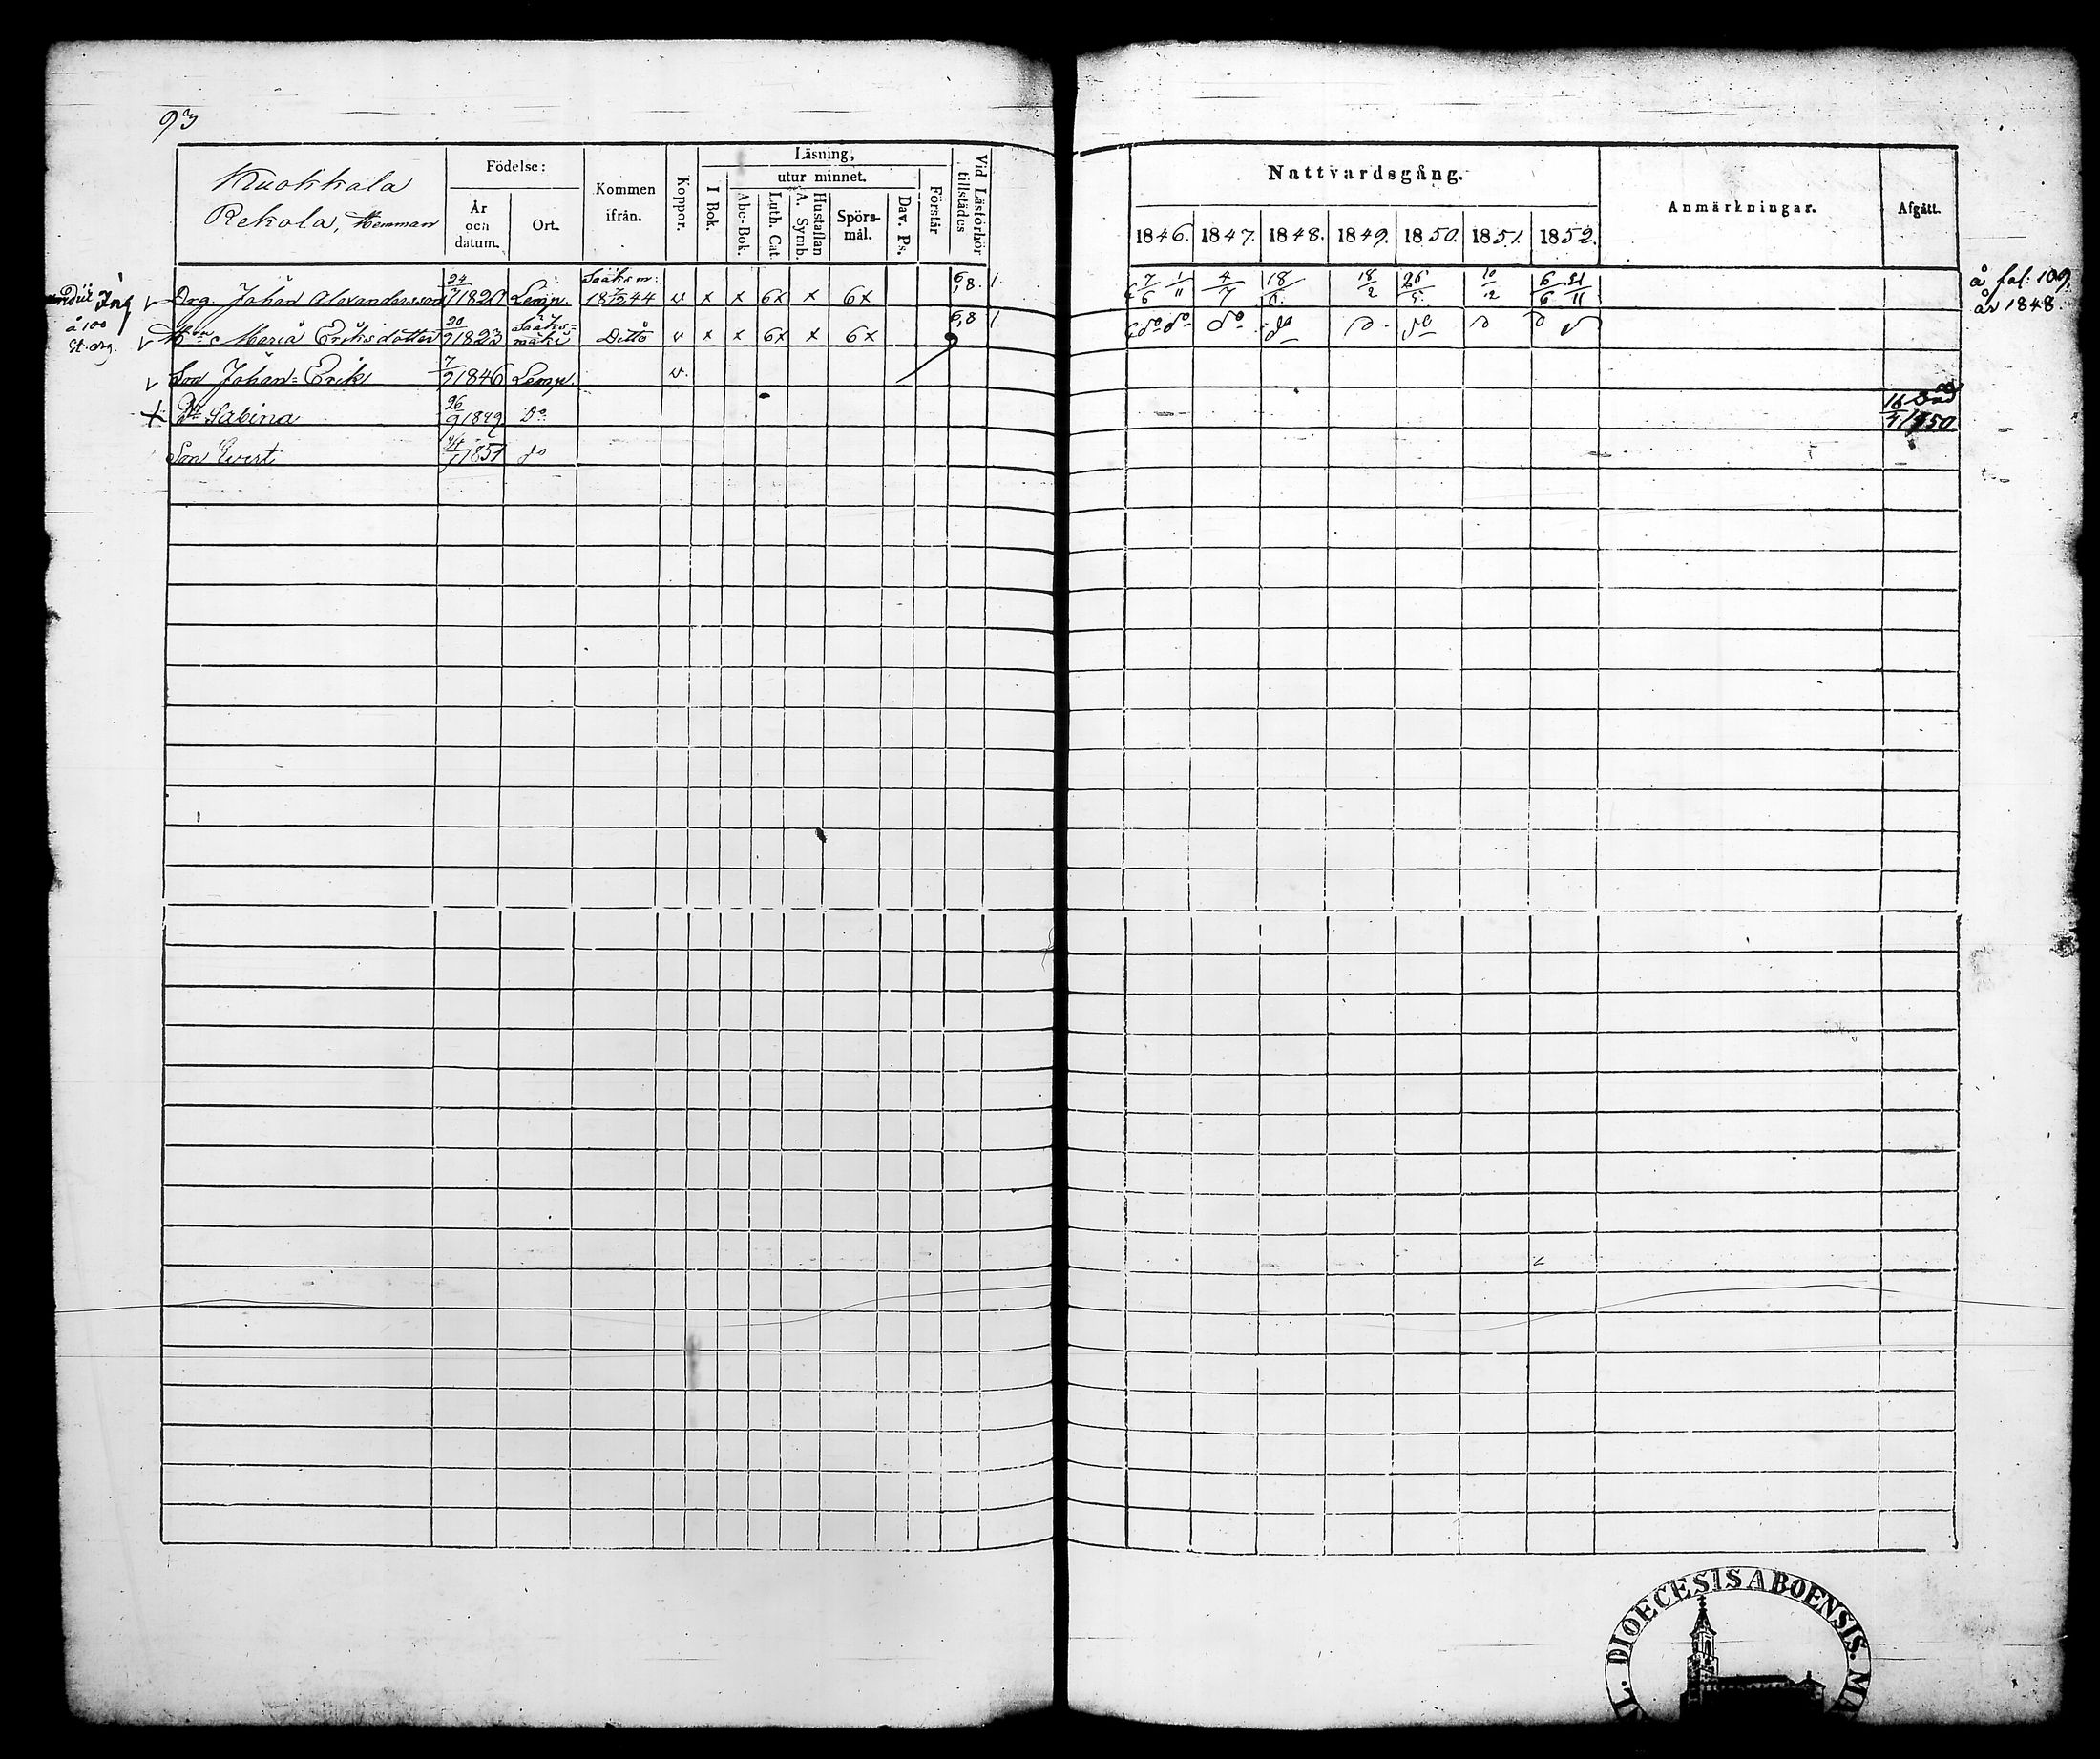 93
Kuokkala
Rekola, Hemman
Födelse:
År
och
datum.
Ort.
Kommen
ifrån.
Koppor.
Läsning,
I Bok.
utur minnet.
Abc-Bok.
Luth. Cat.
Hustaflan
A. Symb.
Spörs-
mål.
Dav. Ps.
Förstår
Vid Läsförhör
tillstädes
Nattvardsgång.
1846. 1847. 1848. 1849. 1850. 1851. 1852.
Anmärkningar.
Afgått.
Drg. Johan Alexandersson 24/7 1820 Lemp. Sääksm: 18 7/2 44 v x x 6x x 6x 6,8. 7/6 1/11 4/7 18/6 18/2 26/5 10/12 6/6 21/11 å fol: 109
år 1848.
å 100
st. drg.
Maria Eriksdotter 20/9 1823 Sääks=
mäki Ditto v x x 6x x 6x 6,8 do do do do do
Son Johan=Erik 7/9 1846 Lemp. v.
Dr Sabina 26/9 1849 Do 16/4 1850.
Son Evert 1851 do
L. DIOECESIS ABOENSIS. M